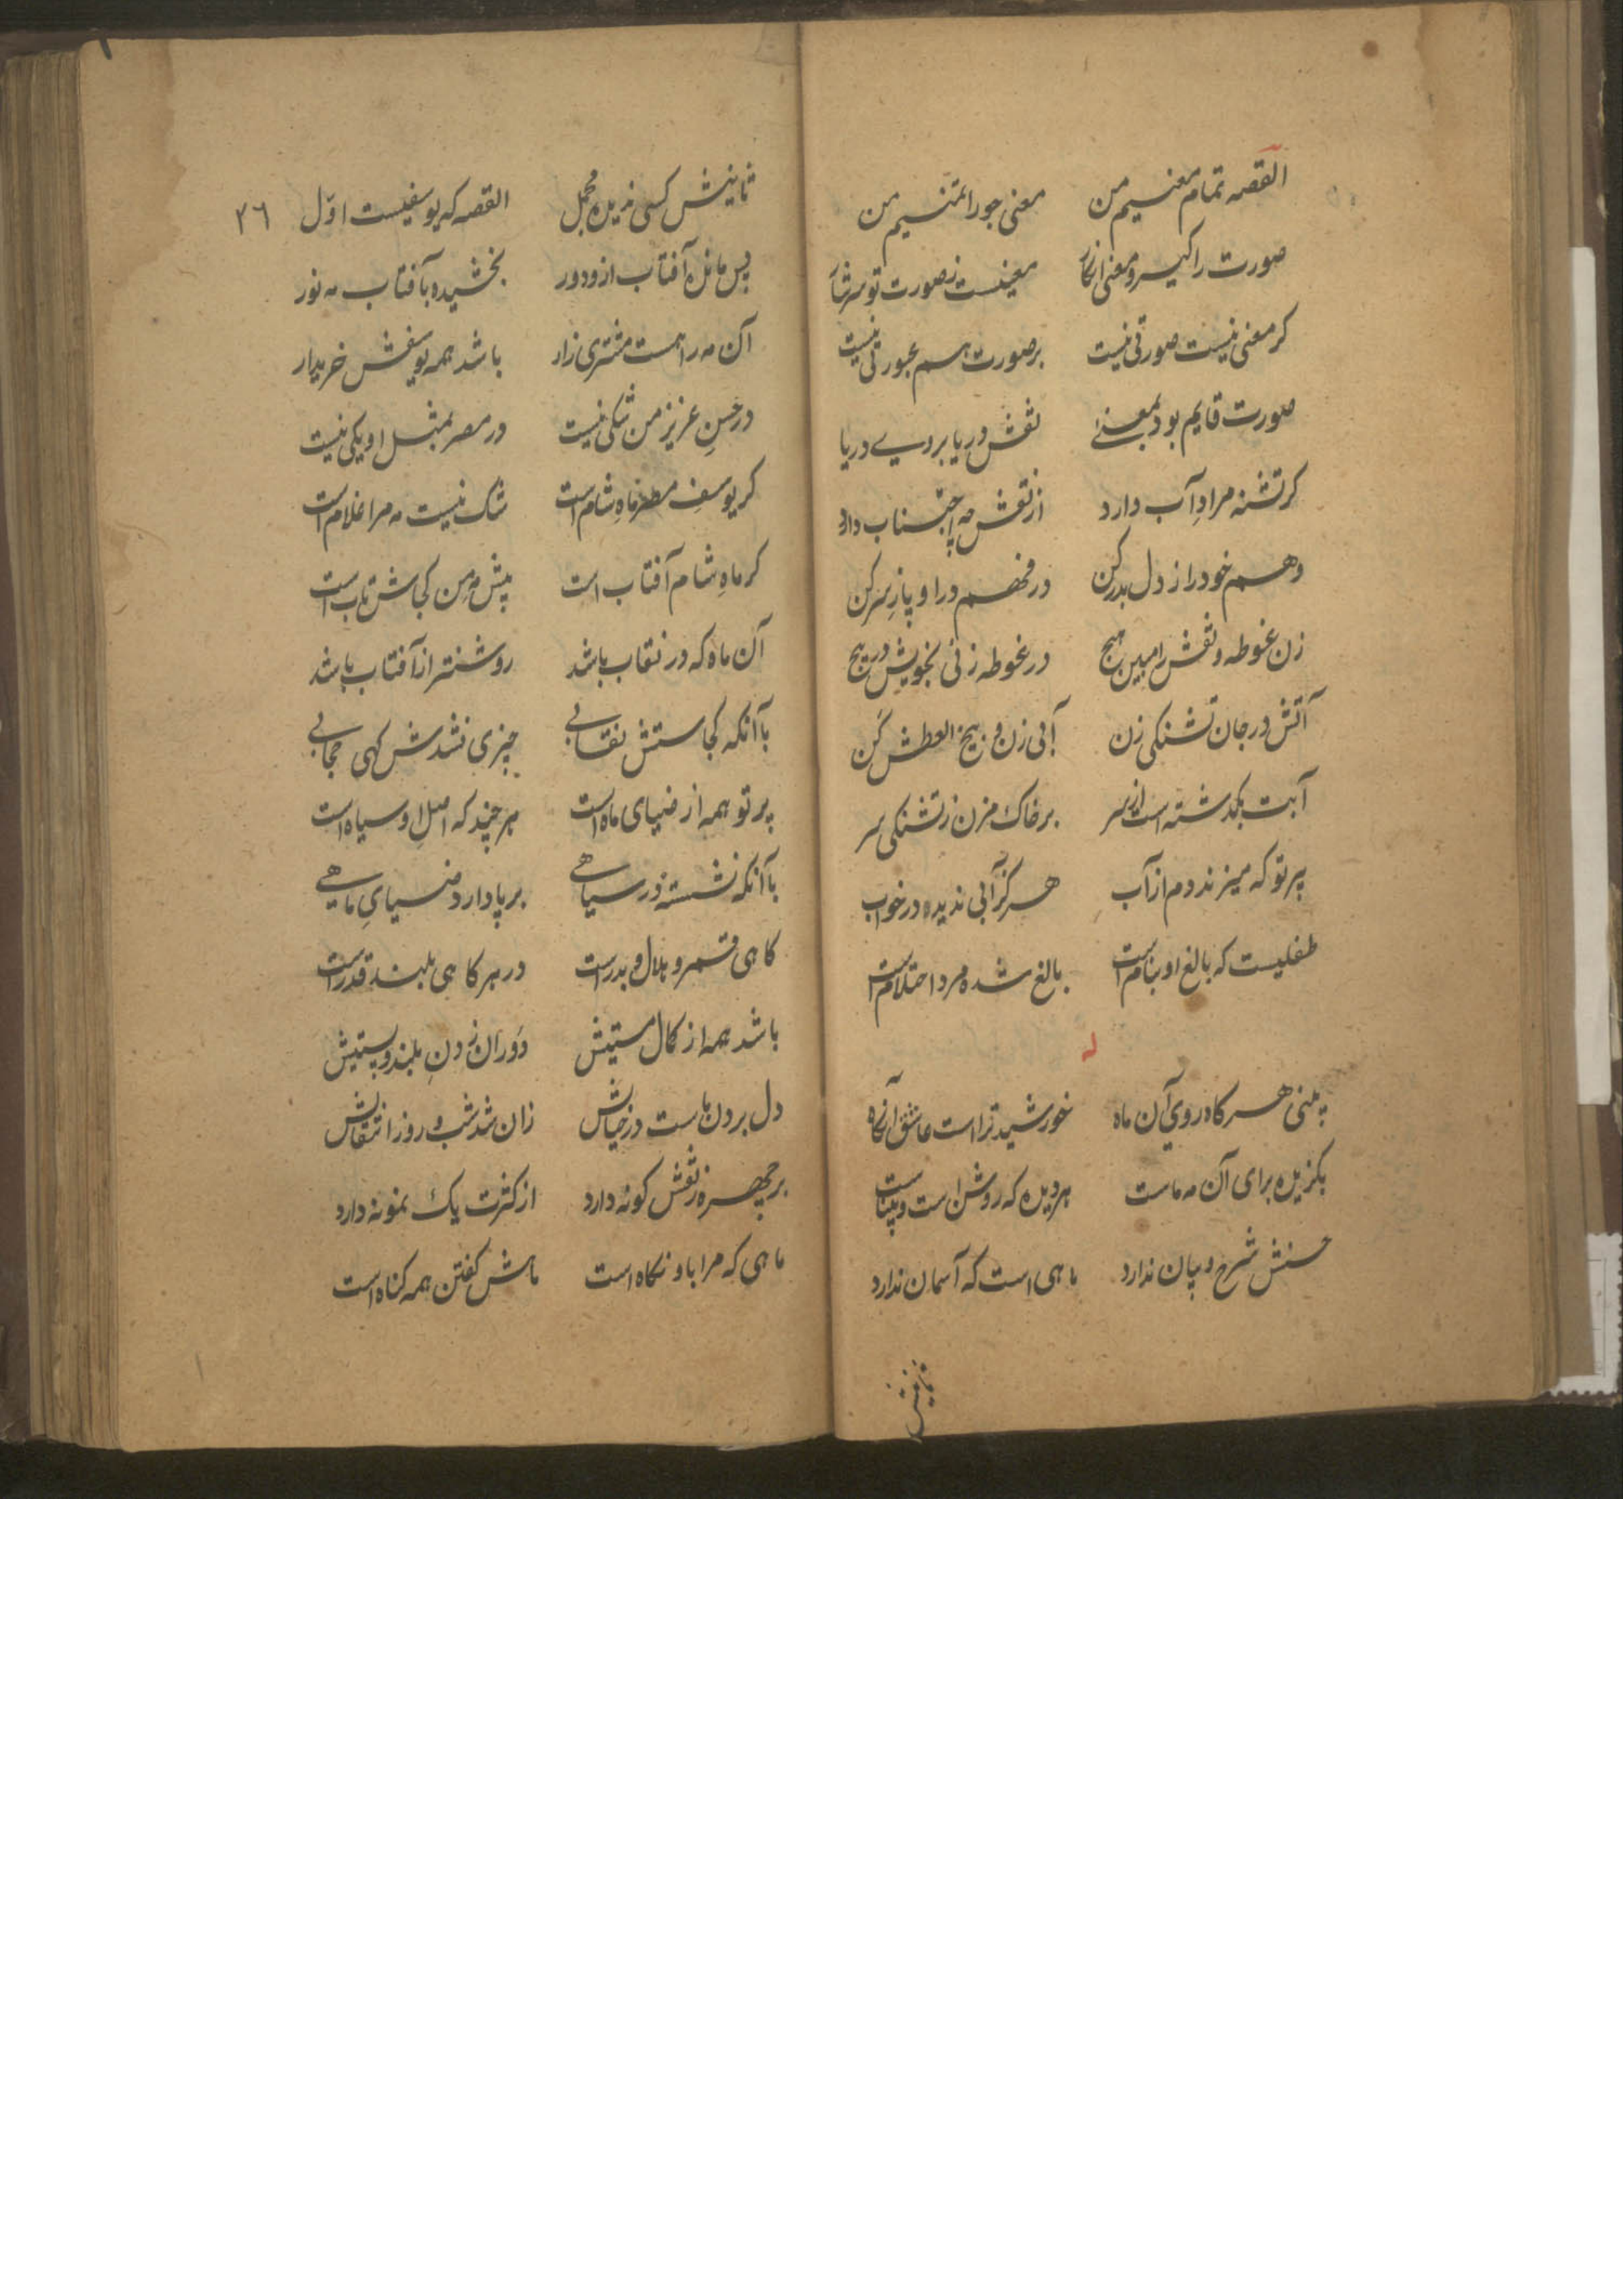 القصه تمام معنیم من معنی جو را تنیم من
صورت راکیر و معنی انکار معنیست ز صورت تو سرشار
کر معنی نیست صورتی نیست بر صورت هم عبورتی نیست
صورت قایم بود بمعنے نقش دریا بروے دریا
کر تشنه مرادِ آب دارد از نقش چه اجتناب دارد
وهم خود را ز دل بدر کن در فهم درا و پا ز سر کن
زن غوطه و نقش را مبین هیچ در غوطه زنی بخویش در پیچ
آتش در جان تشنکی زن آبی زن و بیخ العطش کن
آبت بکذشته است از سر بر خاک مزن ز تشنکی سر
پرتو که میزند دم از آب هرکز آبی ندیده در خواب
طفلیست که بالغ او بنام است بالغ شده مرد احتلام است
له
به بینی هر کاه روی آن ماه خورشید ترا است عاشق آنکاه
بکزیده برای آن مه ماست هر دیده که روشن است و بیناست
حسنش شرح و بیان ندارد ماهی است که آسمان ندارد
ثانیش
٢٦
ثانیش کسی ندیده مجمل القصه که یوسفیست اوّل
پس مانده آفتاب ازو دور بخشیده بآفتاب مه نور
آن مه را هست مشتری زار باشد همه یوسفش خریدار
در حسنِ عزیز من شکی نیست در مصر بمثل او یکی نیست
کر یوسفِ مصر ماهِ شام است شک نیست مه مرا غلام است
کر ماهِ شام آفتاب است پیش مه من کجاش تاب است
آن ماه که در نقاب باشد روشنتر از آفتاب باشد
با آنکه کجاستش نقابی چیزی نشدش کهی حجابی
پرتو همه از ضیای ماه است هر چند که اصلِ او سیاه است
با آنکه نشسته در سیاهے بر پا دارد ضیایِ ماهے
کاهی قمر و هلال و بدر است در هر کاهی بلند قدر است
باشد همه از کمال مستیش دَوران زدنِ بلند و پستیش
دل بردن ماست در خیالش زان شد شب و روز انتقالش
بر چهره ز نقش کونه دارد از کثرت یک نمونه دارد
ماهی که مرا باو نکاه است ماهش کفتن همه کناه است